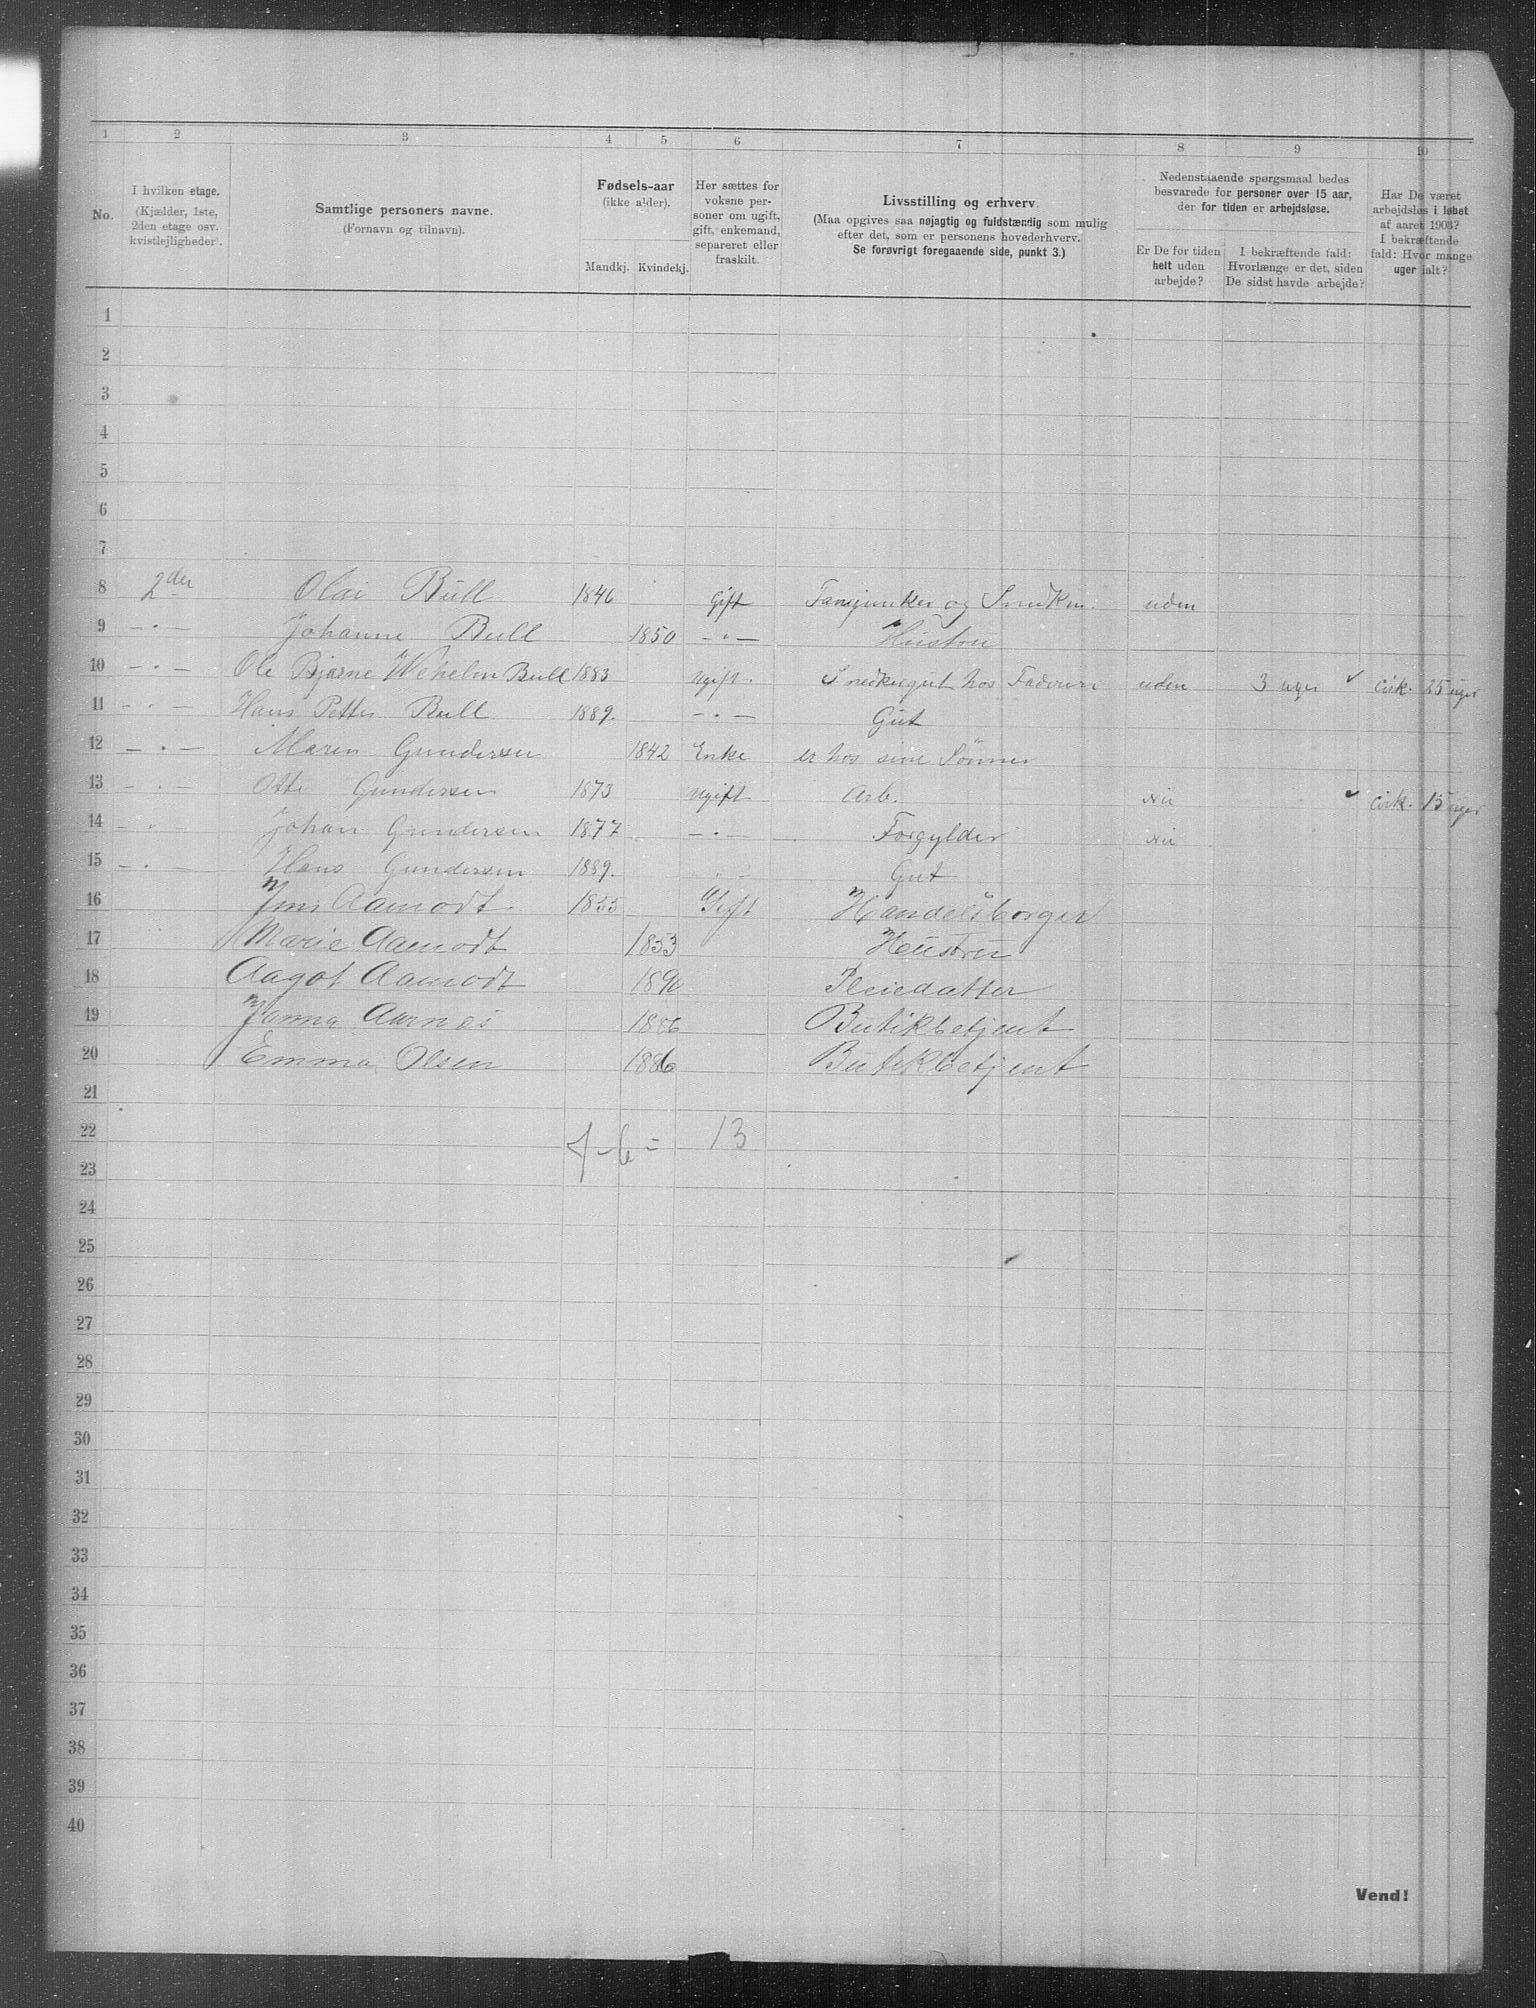 1 2 3 4 5 6 7 8 9 10
No.
I hvilken etage.
(Kjælder, 1ste,
2den etage osv.
kvistlejligheder).
Samtlige personers navne.
(Fornavn og tilnavn).
Fødsels-aar
(ikke alder).
Mandkj. Kvindekj.
Her sættes for
voksne per-
soner om ugift,
gift, enkemand,
separeret eller
fraskilt.
Livsstilling og erhverv.
(Maa opgives saa nøjagtig og fuldstændig som mulig
efter det, som er personens hovederhverv.
Se forøvrigt foregaaende side, punkt 3.)
Nedenstaaende spørgsmaal bedes
besvarede for personer over 15 aar,
der for tiden er arbejdsløse.
Er De for tiden
helt uden
arbejde?
I bekræftende fald:
Hvorlænge er det, siden
De sidst havde arbejde?
Har De været
arbejdsløs i løbet
af aaret 1903?
I bekræftende
fald: Hvor mange
uger ialt?
1
2
3
4
5
6
7
8 2der Olai Bull 1846 Gift og uden
9 — " — Johanne Bull 1850 — " — Hustru
10 — " — Ole Bjarne Wehelm Bull 1883 ugift. Snedkergut hos Faderen uden 3 uger ✓ cirk. 25 uger
11 — " — Hans Petter Bull 1889. — " — Gut
12 — " — Maren Gundersen 1842 Enke er hos sine Sønner
13 — " — Otto Gundersen 1873 ugift Arb. Nei ✓ cirk. 15 uger
14 — " — Johan Gundersen 1877 — " — Forgylder Nei
15 — " — Hans Gundersen 1889. — " — Gut
16 Jens Aamodt 1855 Gift Handelsborger
17 Marie Aamodt 1853 Hustru
18 Aagot Aamodt 1890 Pleiedatter
19 Janna Aarnes 1886 Butikbetjent
20 Emma Olsen 1886 Butikbetjent
21
22 7 - 6 = 13
23
24
25
26
27
28
29
30
31
32
33
34
35
36
37
38
39
40
Vend!